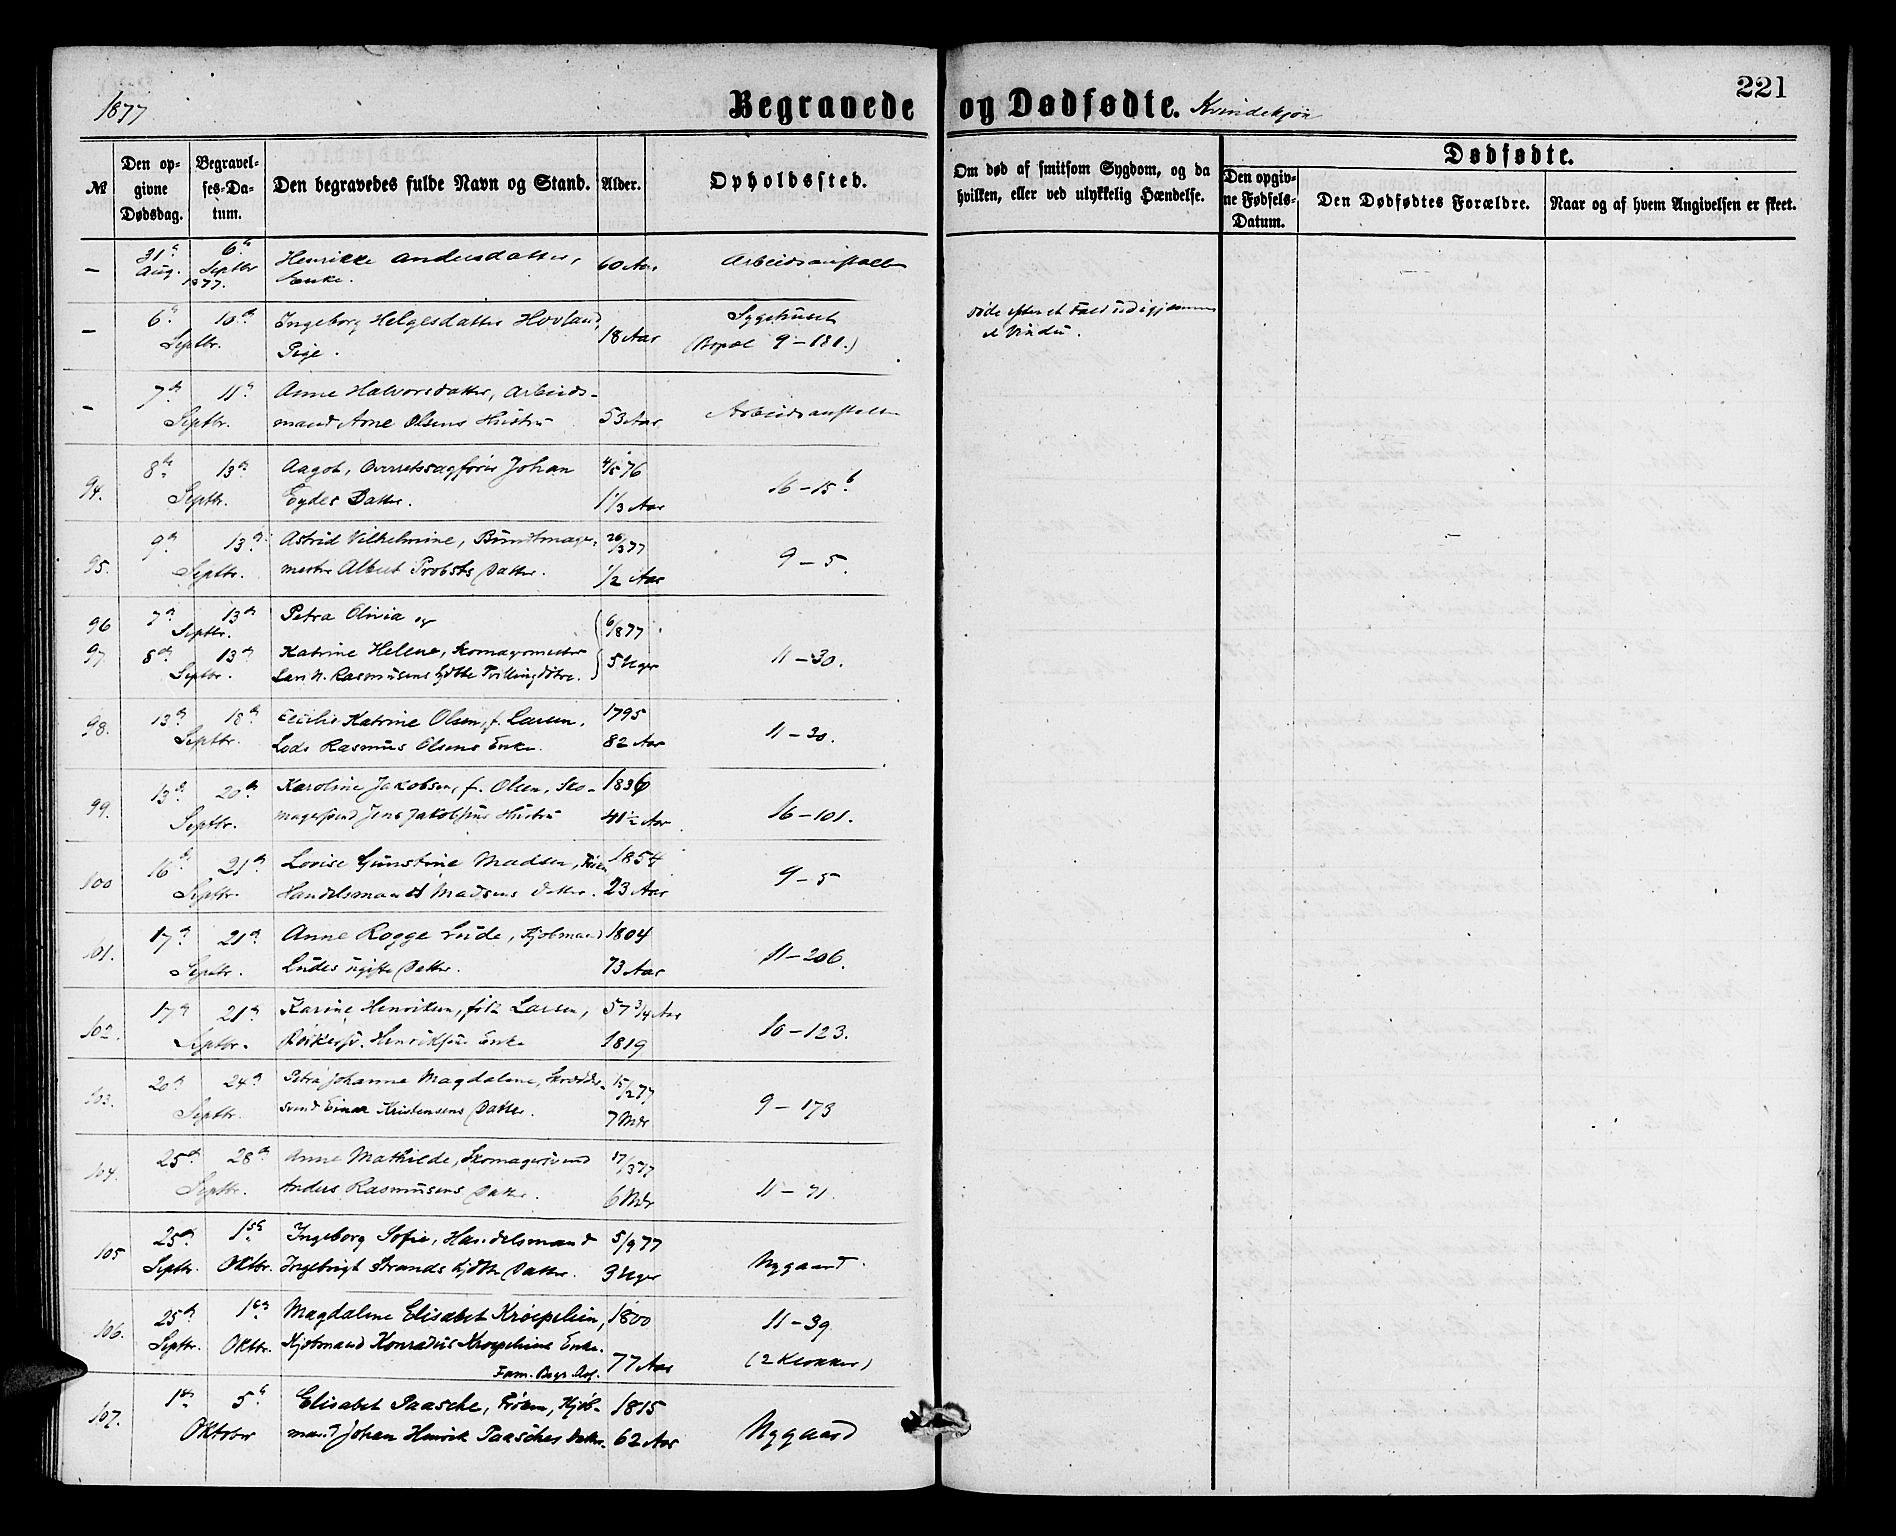 1877
Begravede og Dødfødte. Kvindekjøn
221
№
Den opgivne Dødsdag.
Begravelses-Datum.
Den begravedes fulde Navn og Stand.
Alder.
Opholdssted.
Om død af smitsom Sygdom, og da hvilken, eller ved ulykkelig Hændelse.
Dødfødte.
Den opgivne Fødsels-Datum.
Den Dødfødtes Forældre.
Naar og af hvem Angivelsen er skeet.
– 31te Aug. 6te Septbr 1877. Henrikke Andersdatter, 60 Aar Arbeidsanstalten
Enke.
– 6te 10de Septbr. Ingeborg Helgesdatter Hovland, 18 Aar Sygehuset døde efter et Fald ud igjennem
Pige. (Bopæl 9–131.) et Vindu.
– 7de 11te Septbr. Anne Halvorsdatter, Arbeids-
mand Arne Olsens Hustru 53 Aar Arbeidsanstalten
94. 8de 13de Septbr. Aagot, Overretssagfører Johan 4/5 76 16–15b.
Eydes Datter. 1 1/3 Aar
95. 9de 13de Septbr. Astrid Vilhelmine, Buntmager- 26/3 77 9–5.
mester Albert Probsts Datter. 1/2 Aar
96 7de 13de Septbr. Petra Olivia og 6/8 77
97 8de 13de Septbr. Katrine Helene, Skomagermester 5 Uger 11–30.
Lars N. Rasmusens Tvillingdøtre.
98. 13de 18de Septbr. Cecilie Katrine Olsen, f. Larsen, 1795 11–30.
Lods Rasmus Olsens Enke. 82 Aar
99. 13de 20de Septbr. Karoline Jakobsen, f. Olsen, Sko- 1836 16–101.
magersvend Jens Jakobsens Hustru 41 1/2 Aar
100 16de 21de Septbr. Lovise Madsen, Frøken 1854 9–5
Handelsmand Madsens Datter. 23 Aar
101. 17de 21de Septbr. Anne Rogge Lude, Kjøbmand 1804 11–206.
Ludes ugifte Datter. 73 Aar
102. 17de 21de Septbr. Karine Henriksen, født Larsen, 57 3/4 Aar 10–123.
Henriksens Enke 1819
103. 20de 24de Septbr. Petra Johanne Magdalene, Skrædder- 15/2 77 9–173
svend Einar Kristensens Datter. 7 Mdr
104. 25de 28de Septbr. Anne Mathilde, Skomagersvend 17/3 77 11–71.
Anders Rasmusens Datter. 6 Mdr
105 25de Septbr. 1ste Oktbr. Ingeborg Sofie, Handelsmand 5/9 77 Nygaard.
Ingebrigt Strands Datter. 3 Uger
106. 25de Septbr. 1ste Oktbr. Magdalene Elisabet Krøepelien, 1800 11–39
Kjøbmand Konradus Krøepeliens Enke. 77 Aar (2 Klokker)
Fam. Begr.
107. 1ste 5te Oktober Elisabet Paasche, Frøken, Kjøb- 1815 Nygaard
mand Johan Henrik Paasches Datter. 62 Aar